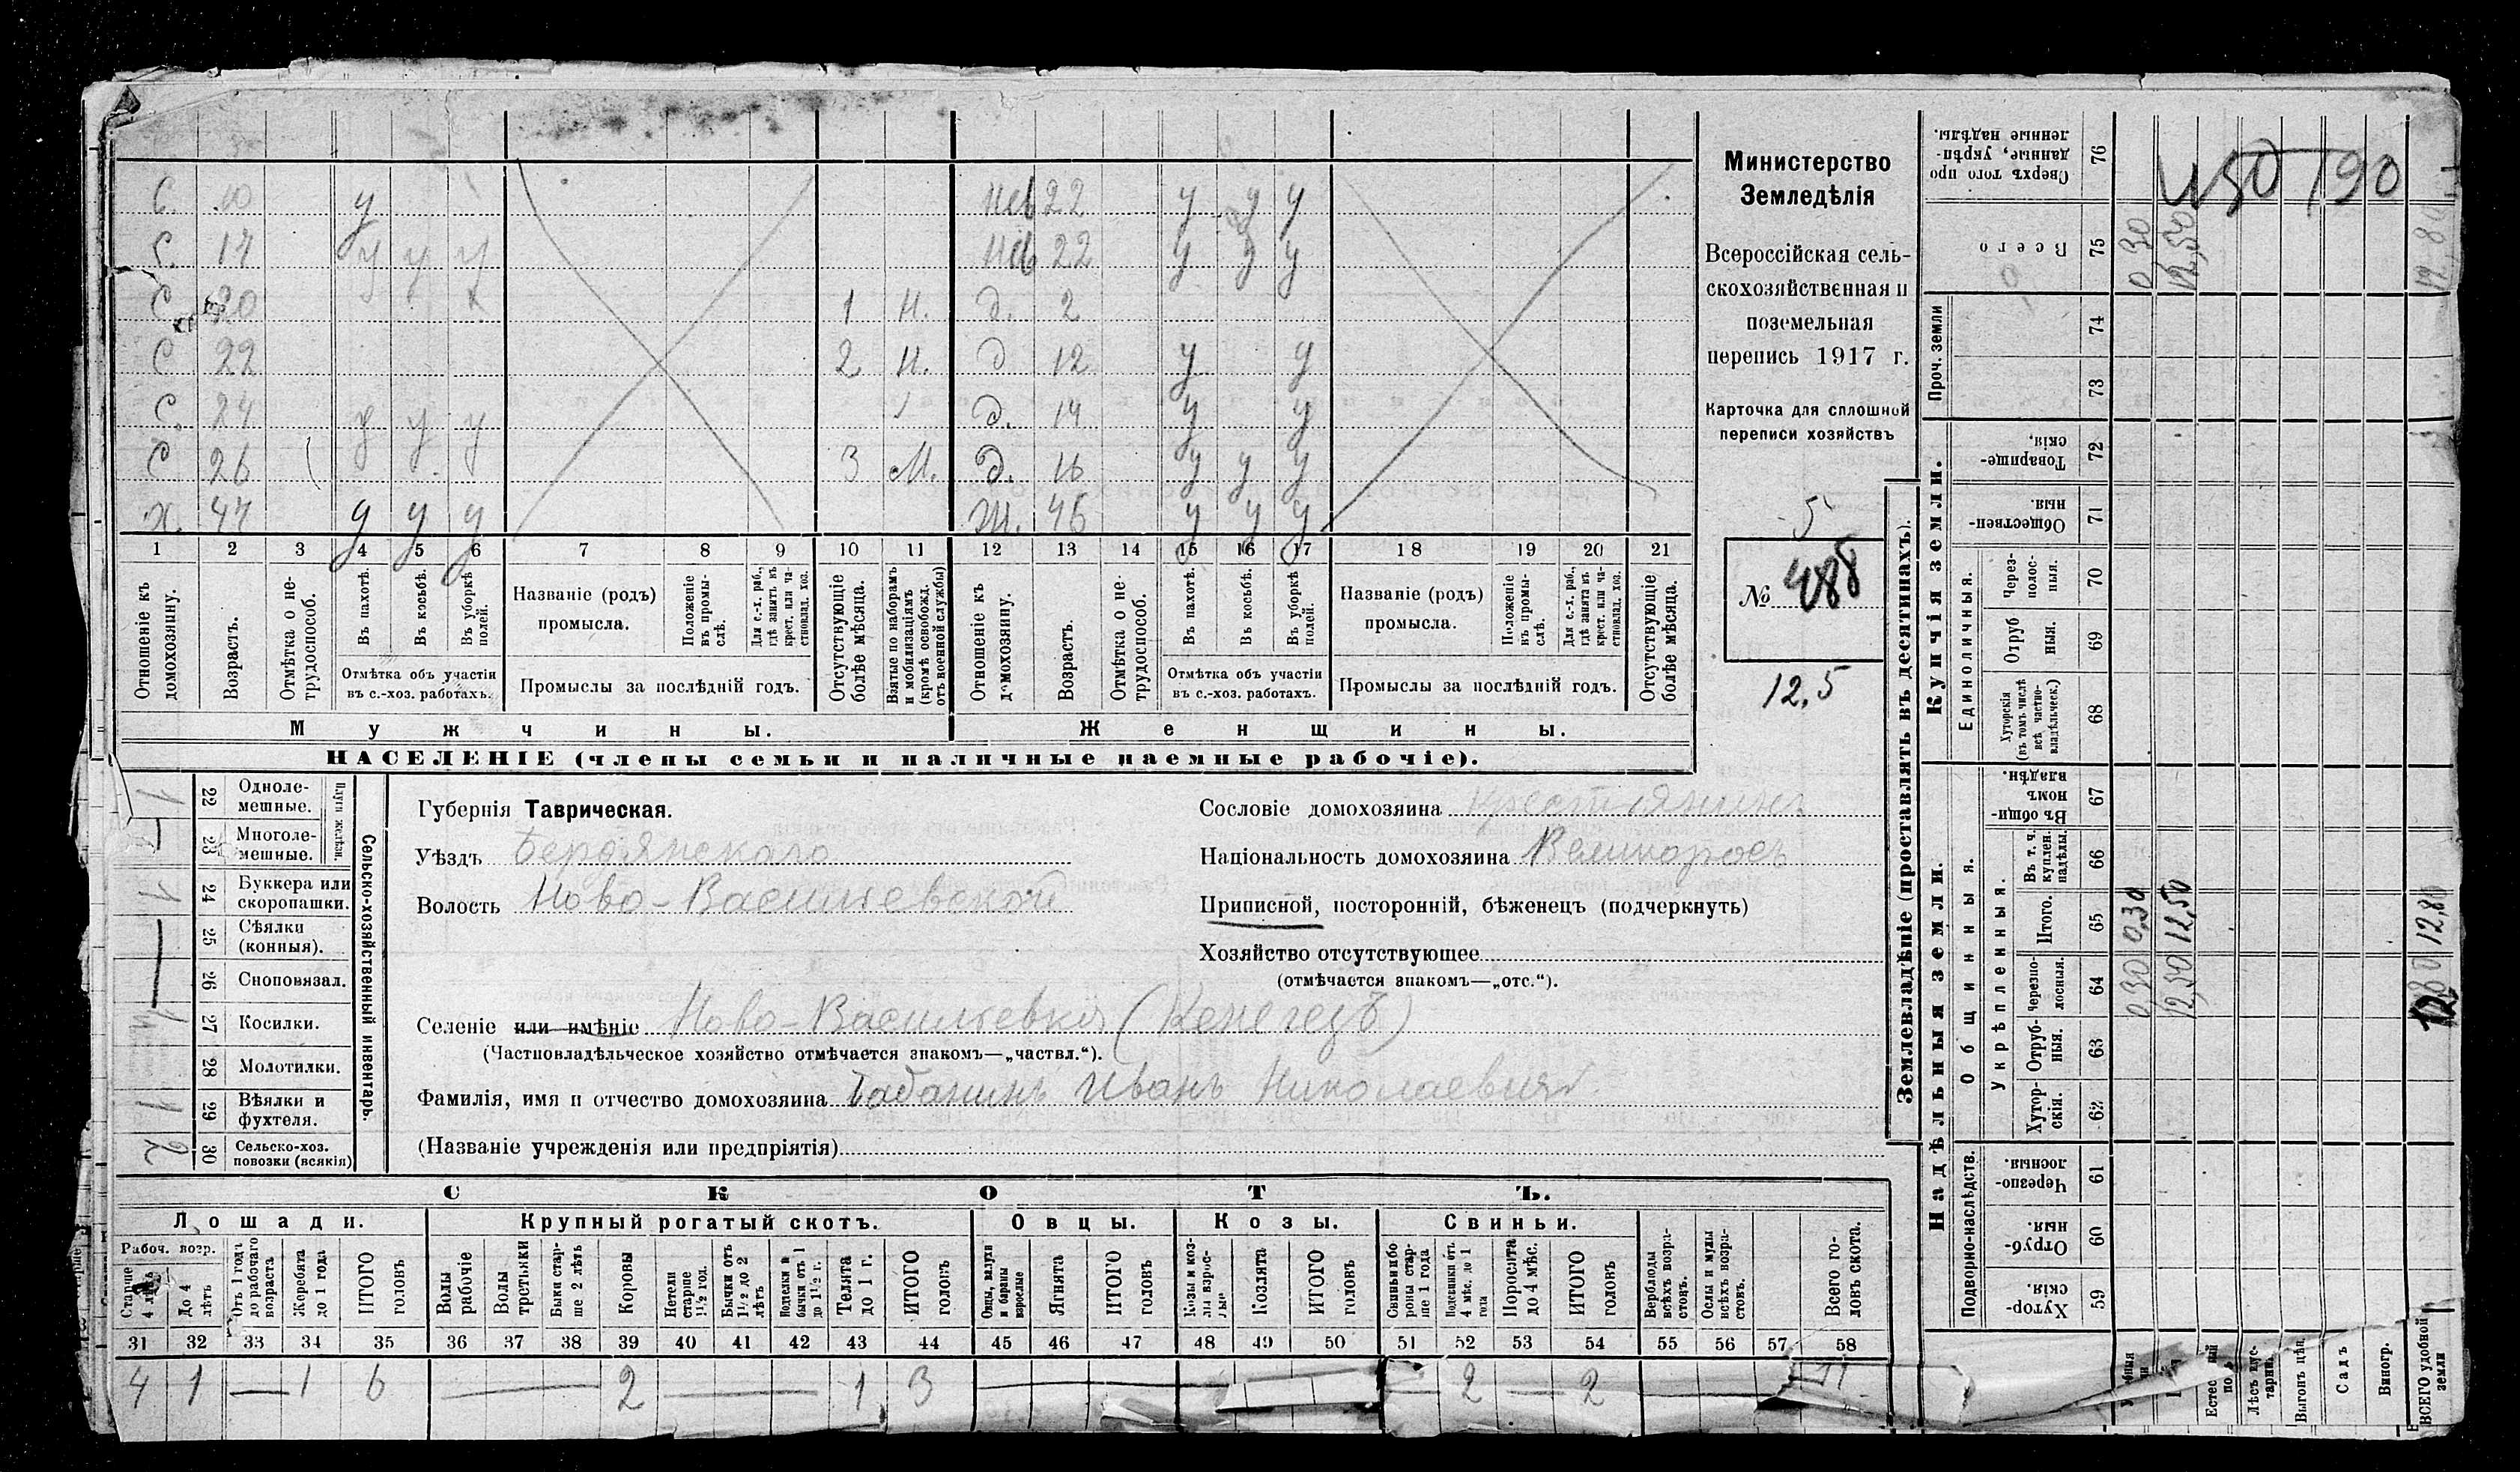 С. 10 у Нев 22 у у у
С. 17 у у у Нев 22 у у у
С. 20 1 Н. д. 2
С 22 2 Н. д 12 у у
С. 24 у у у д. 14 у у
С 26 3 М. д. 16 у у у
Х. 47 у у у Ж. 46 у у у
1 2 3 4 5 6 7 8 9 10 11 12 13 14 15 16 17 18 19 20 21
Отношеніе къ домохозяину.
Возрастъ.
Отмѣтка о не-трудоспособ.
Въ пахотѣ.
Въ косьбѣ.
Въ уборкѣ полей.
Отмѣтка объ участіи
въ с.-хоз. работахъ.
Названіе (родъ)
промысла.
Положеніе въ промы-слѣ.
Для с.-х. раб., гдѣ занятъ въ крест. или ча-стновлад. хоз.
Промыслы за послѣдній годъ.
Отсутствующіе болѣе мѣсяца.
Взятые по наборамъ и мобилизаціямъ (кромѣ освобожд. отъ военной службы)
Отношеніе къ домохозяину.
Возрастъ.
Отмѣтка о не-трудоспособ.
Въ пахотѣ.
Въ косьбѣ.
Въ уборкѣ полей.
Отмѣтка объ участіи
въ с.-хоз. работахъ.
Названіе (родъ)
промысла.
Положеніе въ промы-слѣ.
Для с.-х. раб., гдѣ занята въ крест. или ча-стновлад. хоз.
Промыслы за послѣдній годъ.
Отсутствующіе болѣе мѣсяца.
Мужчины. Женщины.
НАСЕЛЕНІЕ (члены семьи и наличные наемные рабочіе).
Министерство
Земледѣлія
Всероссійская сель-
скохозяйственная и
поземельная
перепись 1917 г.
Карточка для сплошной
переписи хозяйствъ
5
№ 488
12,5
22 Одноле-мешные.
23 Многоле-мешные.
Плуги желѣзн.
24 Буккера или скоропашки.
25 Сѣялки (конныя).
26 Сноповязал.
27 Косилки.
28 Молотилки.
29 Вѣялки и фухтеля.
30 Сельско-хоз. повозки (всякія)
Сельско-хозяйственный инвентарь.
1
1
1
1
2
Губернія Таврическая.
Уѣздъ Бердянскаго
Волость Ново-Васильевской
Сословіе домохозяина крестьянинъ
Національность домохозяина Великороссъ
Приписной, посторонній, бѣженецъ (подчеркнуть)
Хозяйство отсутствующее
(отмѣчается знакомъ—„отс.“).
Селеніе или имѣніе Ново-Васильевка (Кенегезъ)
(Частновладѣльческое хозяйство отмѣчается знакомъ—„частвл.“).
Фамилія, имя и отчество домохозяина Табанинъ Иванъ Николаевич
(Названіе учрежденія или предпріятія)
СКОТЪ.
Лошади. Крупный рогатый скотъ. Овцы. Козы. Свиньи.
Рабоч. возр.
Старше 4 лѣтъ
До 4 лѣтъ
Отъ 1 года до рабочаго возраста
Жеребята до 1 года
ИТОГО головъ
Волы рабочіе
Волы третьяки
Быки стар-ше 2 лѣтъ
Коровы
Нетели старше 1½ год.
Бычки отъ 1½ до 2 лѣтъ
Телки и бычки отъ 1 до 1½ г.
Телята до 1 г.
ИТОГО головъ
Овцы, валухи и бараны взрослые
Ягнята
ИТОГО головъ
Козы и коз-лы взрос-лые
Козлята
ИТОГО головъ
Свиньи бо ровы стар-ше 1 года
Подсвинки отъ 4 мѣс. до 1 года
Поросята до 4 мѣс.
ИТОГО головъ
Верблюды всѣхъ возра-стовъ.
Ослы и мулы всѣхъ возра-стовъ.
Всего го-ловъ скота.
31 32 33 34 35 36 37 38 39 40 41 42 43 44 45 46 47 48 49 50 51 52 53 54 55 56 57 58
4 1 — 1 6 — 2 — 1 3 — 2 — 2 — 11
Землевладѣніе (проставлять въ десятинахъ).
Купчія земли.
Надѣльныя земли.
Проч. земли
Единоличныя.
Общинныя.
Укрѣпленныя.
Подворно-наслѣдств.
Сверхъ того про данные, укрѣп-ленные надѣлы. 76
Всего 75
74
73
Товарище-скія. 72
Обществен-ныя. 71
Через-полос-ныя. 70
Отруб ныя. 69
Хуторскія (въ томъ числѣ всѣ частно-владѣльческ.) 68
Въ общин-номъ владѣн. 67
Въ т. ч. куплен. надѣлы. 66
Итого. 65
Черезпо-лосныя. 64
Отруб-ныя. 63
Хутор-скія. 62
Черезпо-лосныя. 61
Отруб-ныя. 60
Хутор-скія. 59
0 30
12,50
0,30 0,30
12,50 12,50
12,80
Выгонъ цѣл.
Садъ
Виногр.
ВСЕГО удобной земли